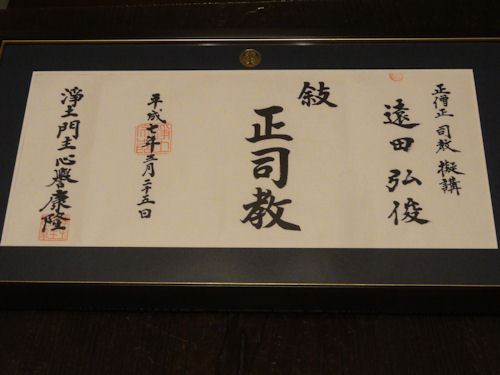 正僧正 司教 擬講
遠田弘俊
敍
正司教
平成七年三月二十五日
浄土門主心譽康隆